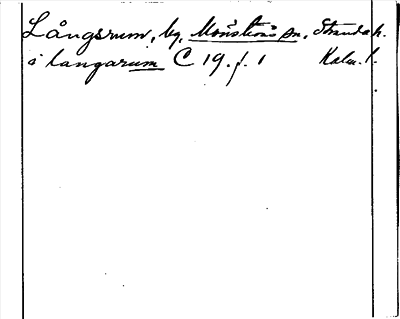 Långsrum, by, Mönsterås sn, Stranda h.
i langarum C 19. f. 1 Kalm. l.